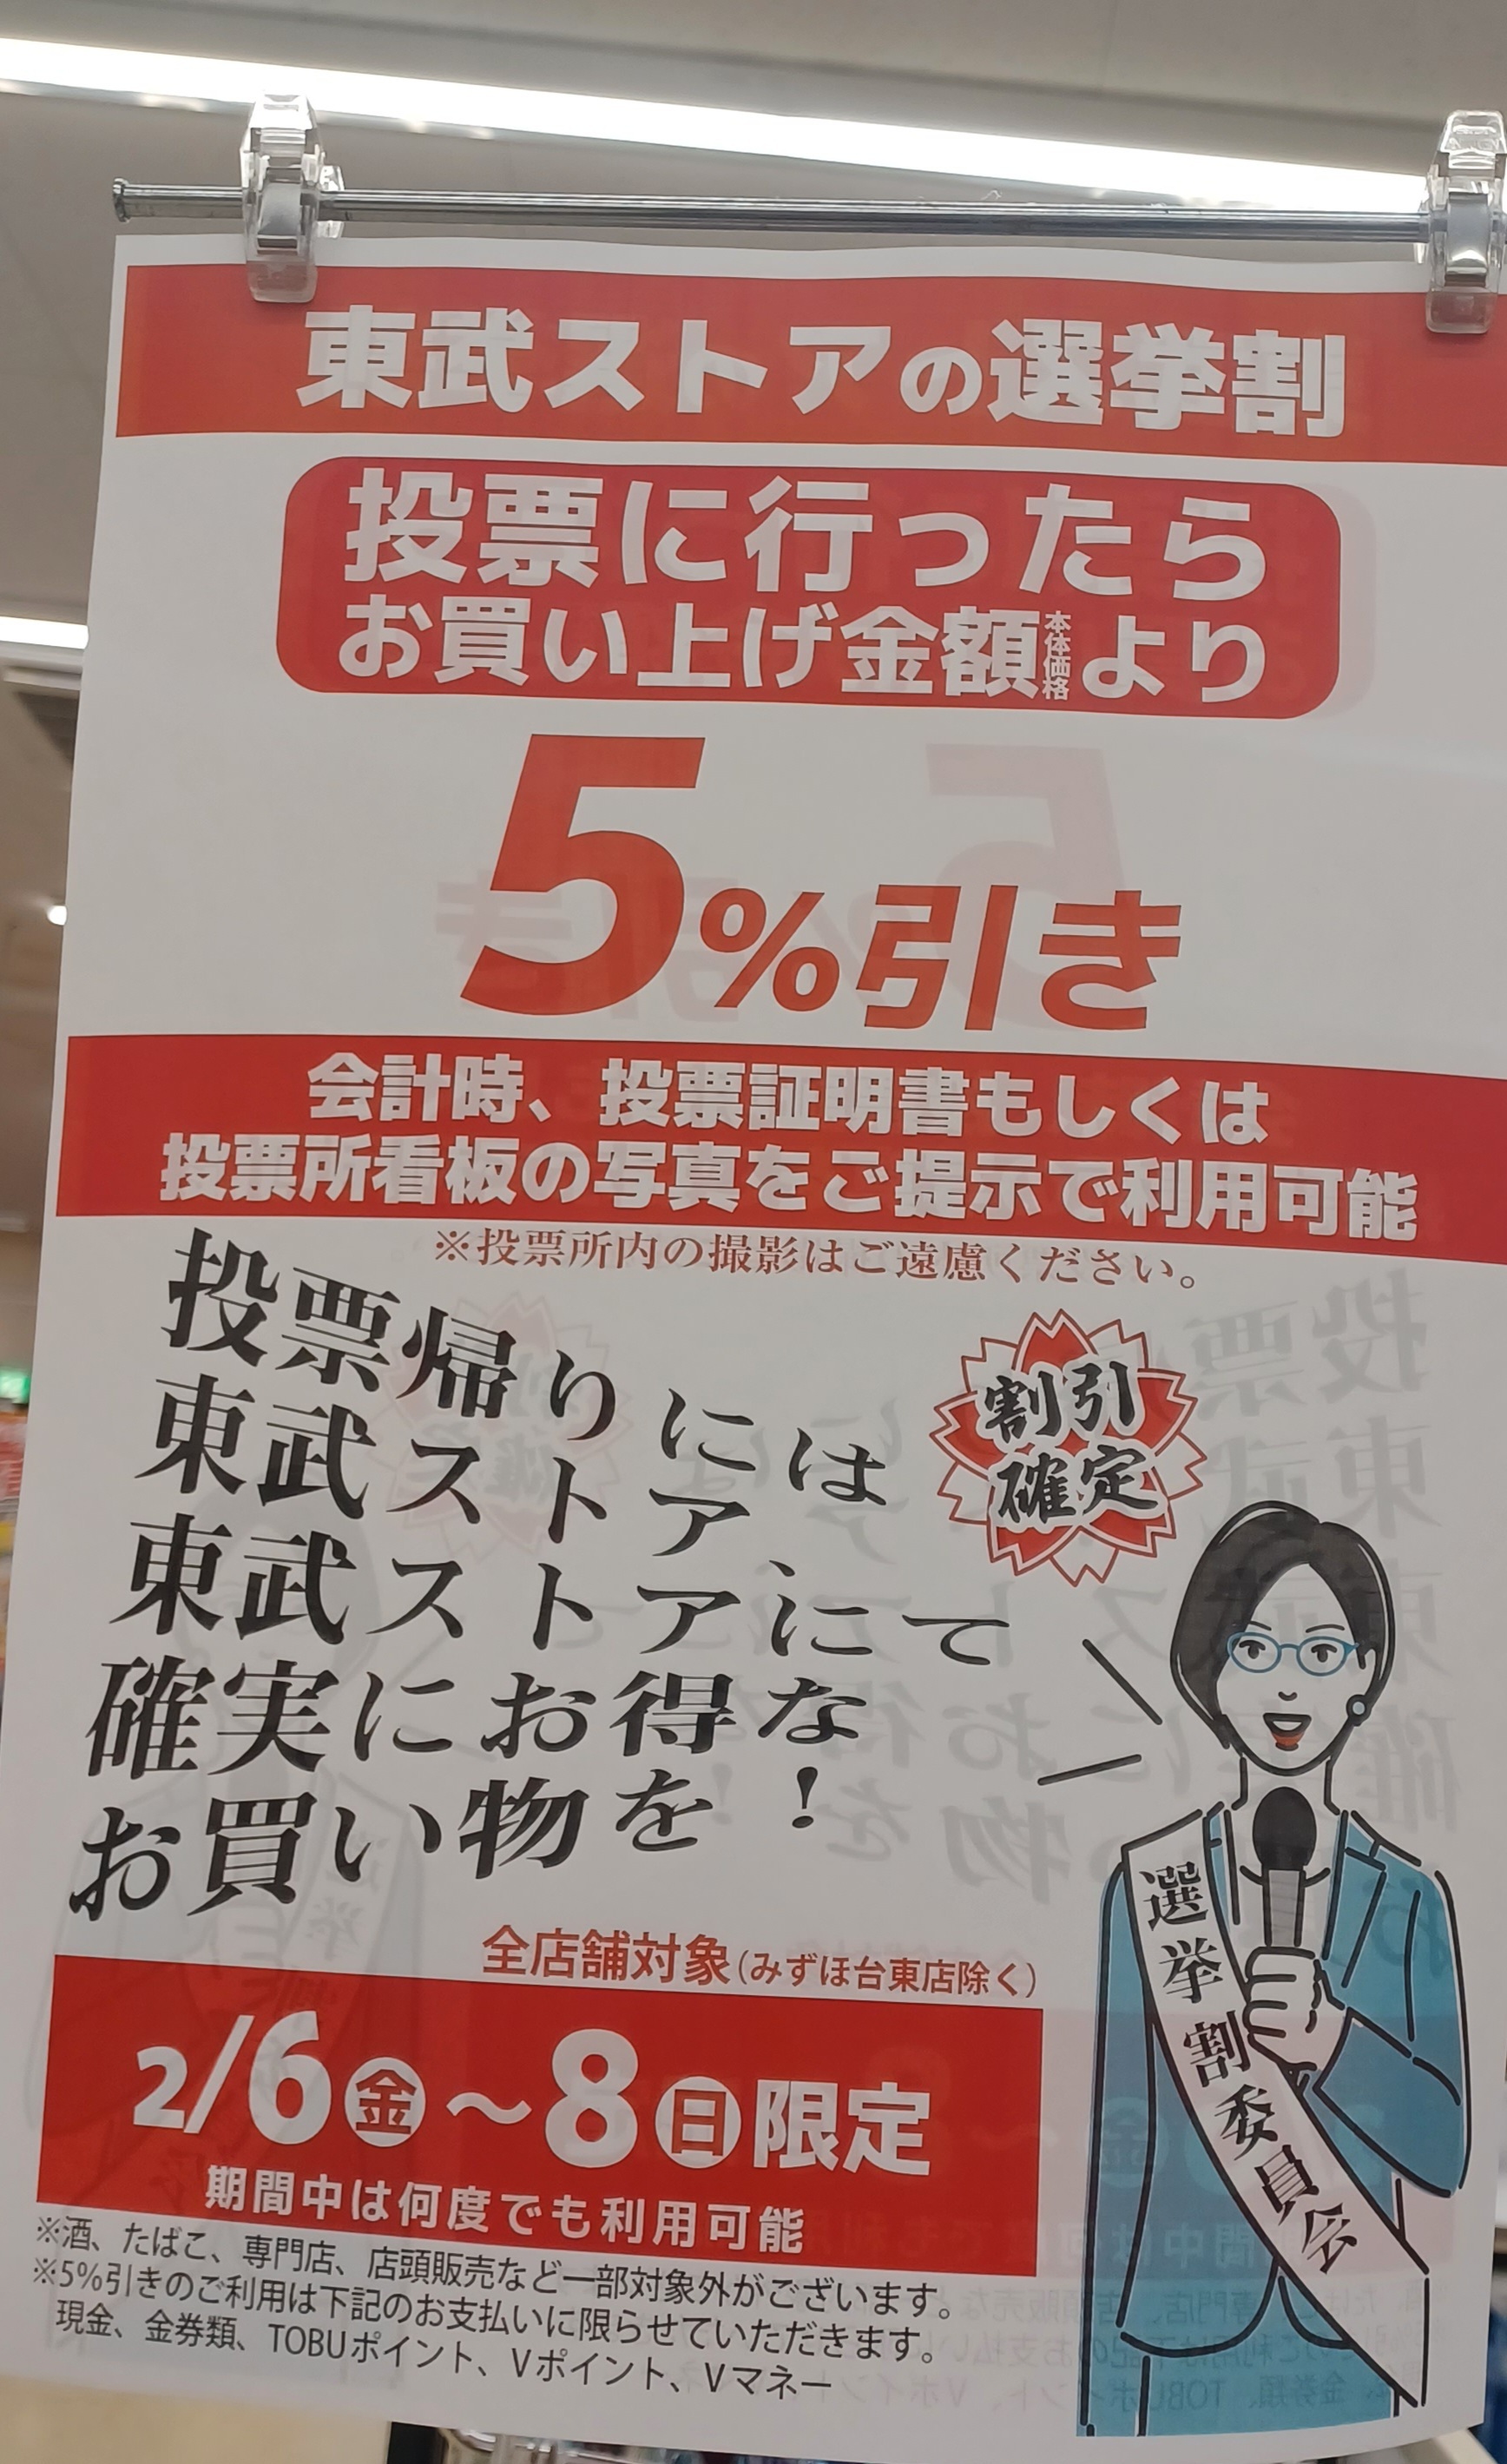 東武ストアの選挙割
投票に行ったら
お買い上げ金額本体価格より
5%引き
会計時、投票証明書もしくは
投票所看板の写真をご提示で利用可能
※投票所内の撮影はご遠慮ください。
投票帰りには
東武ストア、
東武ストアにて
確実にお得な
お買い物を!
割引
確定
選挙割委員会
全店舗対象(みずほ台東店除く)
2/6金~8日限定
期間中は何度でも利用可能
※酒、たばこ、専門店、店頭販売など一部対象外がございます。
※5%引きのご利用は下記のお支払いに限らせていただきます。
現金、金券類、TOBUポイント、Vポイント、Vマネー